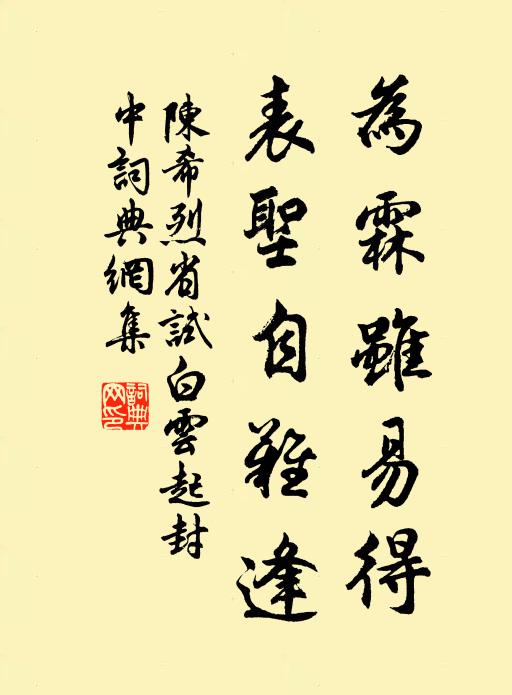 為霖雖易得
表聖自難逢
陳希烈省試白雲起封
中詞典網集
詞典
网印